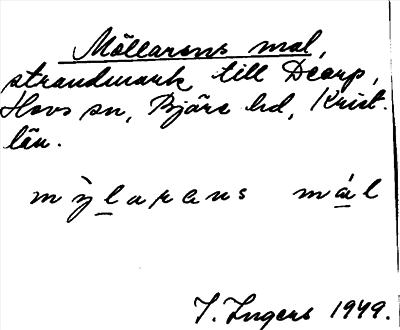 Möllarens mal,
strandmark till Dearp,
Hovs sn, Bjäre hd, Krist.
län.
mỳlarens mál
I. Ingers 1949.